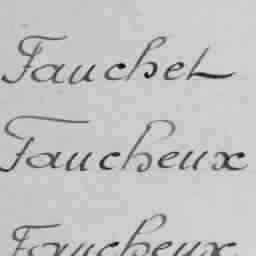 Fauchet
Faucheux
Faucheux